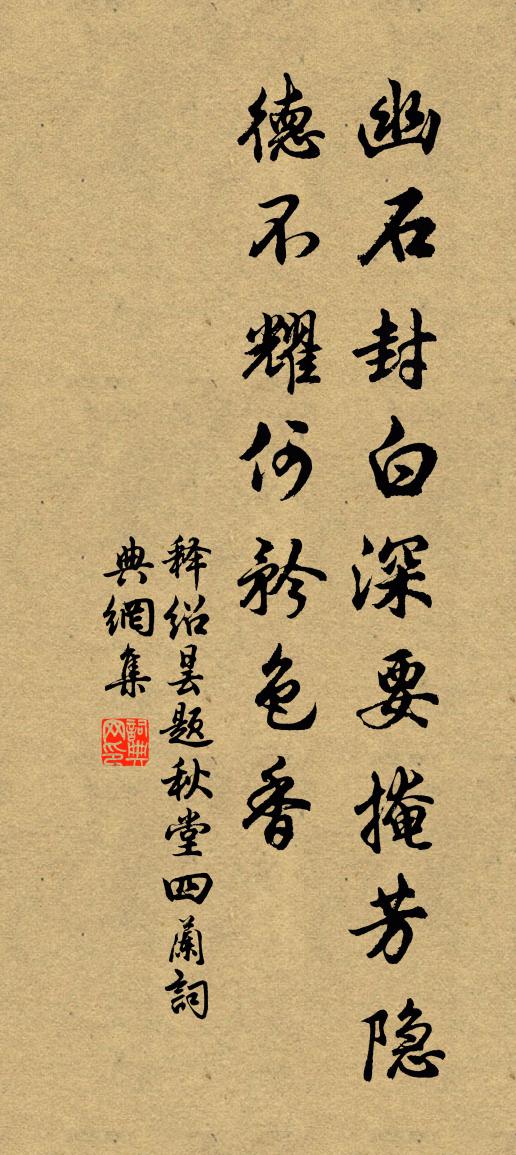 幽石封白深要掩芳隐
德不耀何矜色香
释绍昙题秋堂四蘭詞
典網集
詞典网印